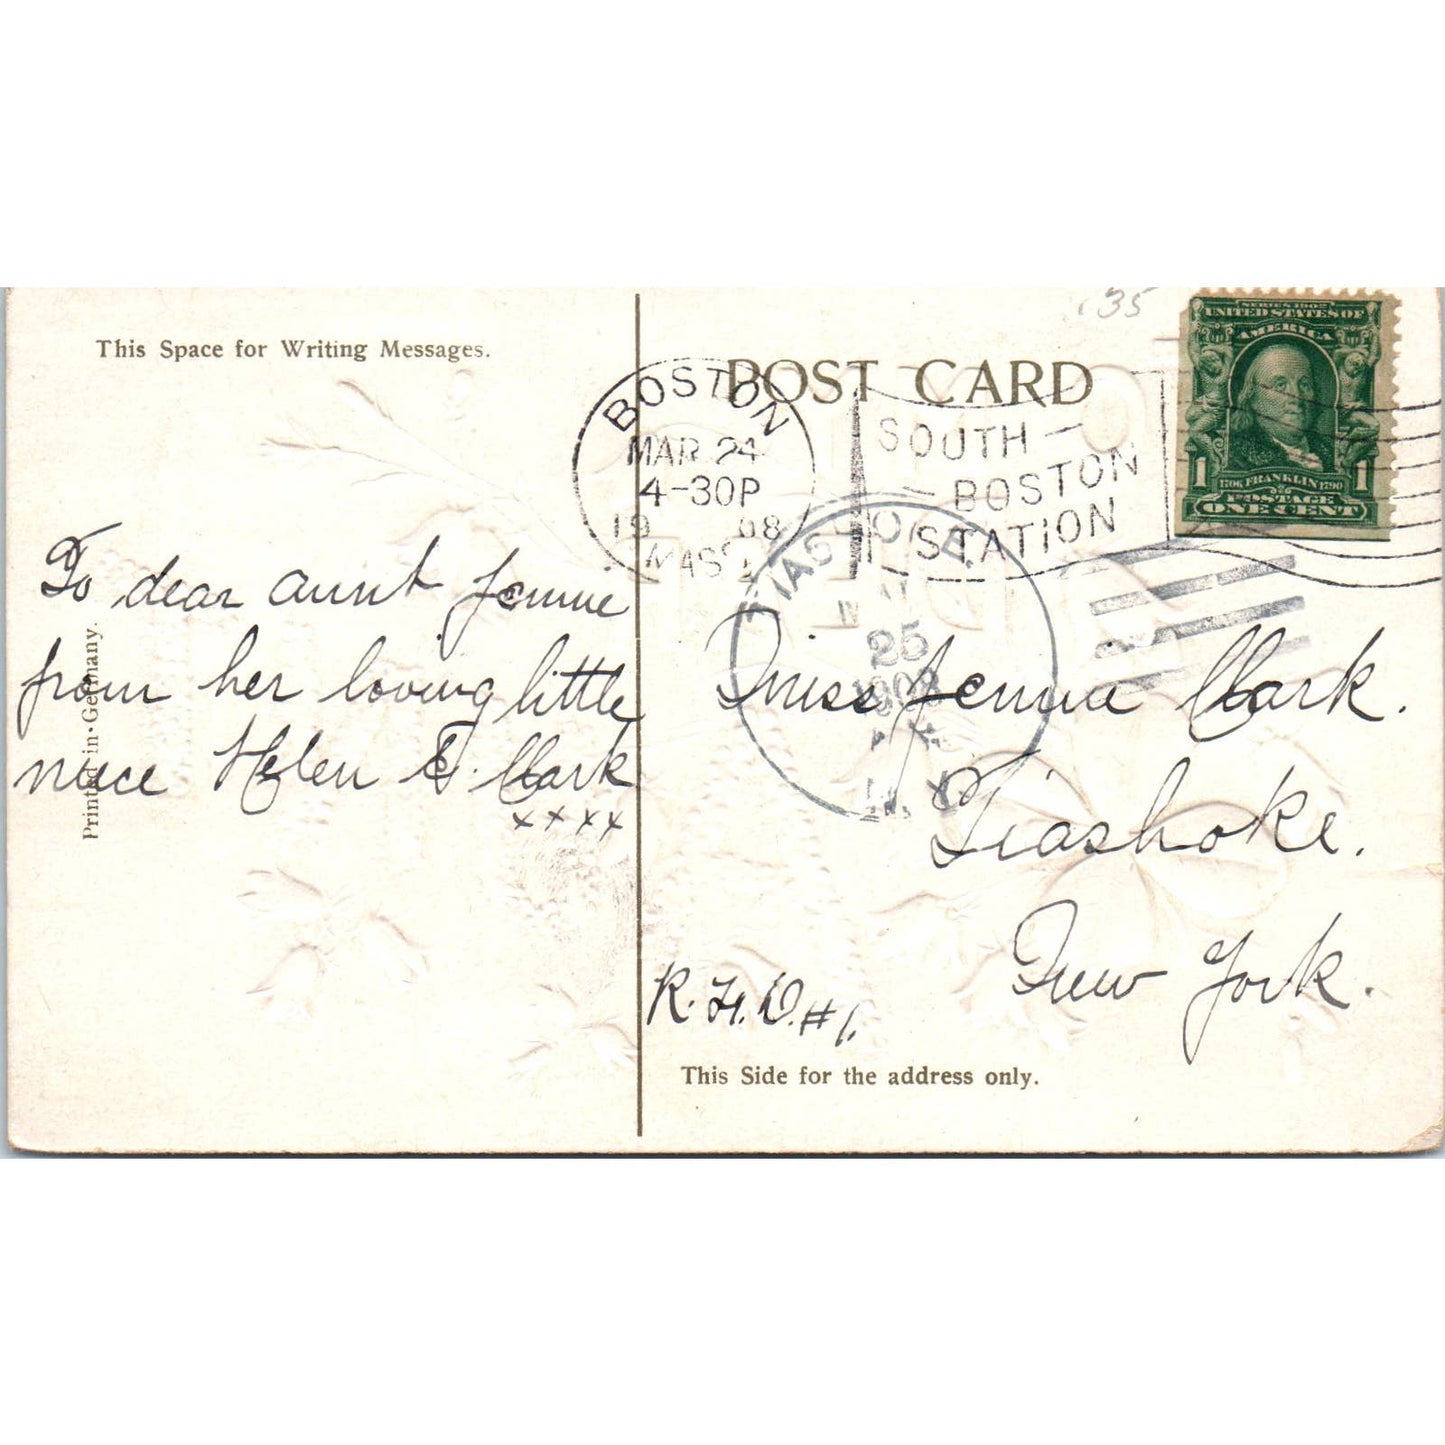 This Space for Writing Messages.
To dear aunt Jennie
from her loving little
niece Helen E. Clark
xxxx
Printed in Germany.
35
POST CARD
BOSTON
MAR 24
4-30P
19 08
MASS
SOUTH
BOSTON
STATION
25
1908
SERIES 1902
UNITED STATES OF
AMERICA
1 1
1706 FRANKLIN 1790
POSTAGE
ONE CENT
Miss Jennie Clark.
Tiashoke.
New York.
R.F.D. #1.
This Side for the address only.